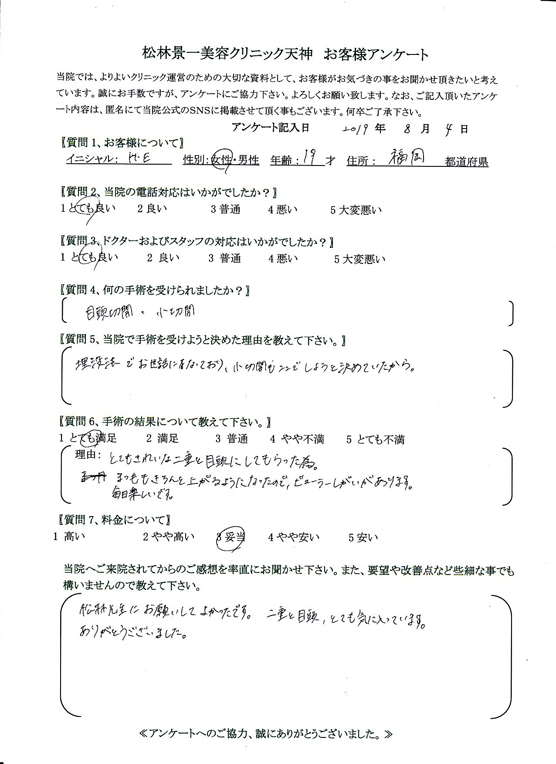 松林景一美容クリニック天神　お客様アンケート
当院では、よりよいクリニック運営のための大切な資料として、お客様がお気づきの事をお聞かせ頂きたいと考え
ています。誠にお手数ですが、アンケートにご協力下さい。よろしくお願い致します。なお、ご記入頂いたアンケ
ート内容は、匿名にて当院公式のSNSに掲載させて頂く事もございます。何卒ご了承下さい。
アンケート記入日　2019 年 8 月 4 日
【質問 1、お客様について】
イニシャル： M・E　性別：女性・男性　年齢：19 才　住所： 福岡　都道府県
【質問 2、当院の電話対応はいかがでしたか？】
1 とても良い　2 良い　3 普通　4 悪い　5 大変悪い
【質問 3、ドクターおよびスタッフの対応はいかがでしたか？】
1 とても良い　2 良い　3 普通　4 悪い　5 大変悪い
【質問 4、何の手術を受けられましたか？】
目頭切開 ・ 小切開
【質問 5、当院で手術を受けようと決めた理由を教えて下さい。】
埋没法でお世話になっており、小切開もここでしようと決めていたから。
【質問 6、手術の結果について教えて下さい。】
1 とても満足　2 満足　3 普通　4 やや不満　5 とても不満
理由： とてもきれいな二重と目頭にしてもらった為。
まつ毛もきちんと上がるようになったので、ビューラーしがいがあります。
毎日楽しいです。
【質問 7、料金について】
1 高い　2 やや高い　3 妥当　4 やや安い　5 安い
当院へご来院されてからのご感想を率直にお聞かせ下さい。また、要望や改善点など些細な事でも
構いませんので教えて下さい。
松林先生にお願いしてよかったです。 二重と目頭、とても気に入っています。
ありがとうございました。
≪アンケートへのご協力、誠にありがとうございました。≫